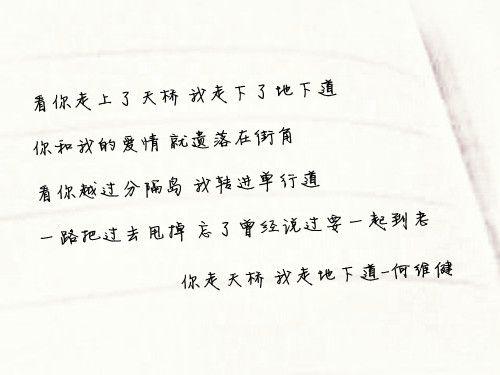 看你走上了天桥 我走下了地下道
你和我的爱情 就遗落在街角
看你越过分隔岛 我转进单行道
一路把过去甩掉 忘了曾经说过要一起到老
你走天桥 我走地下道-何维健